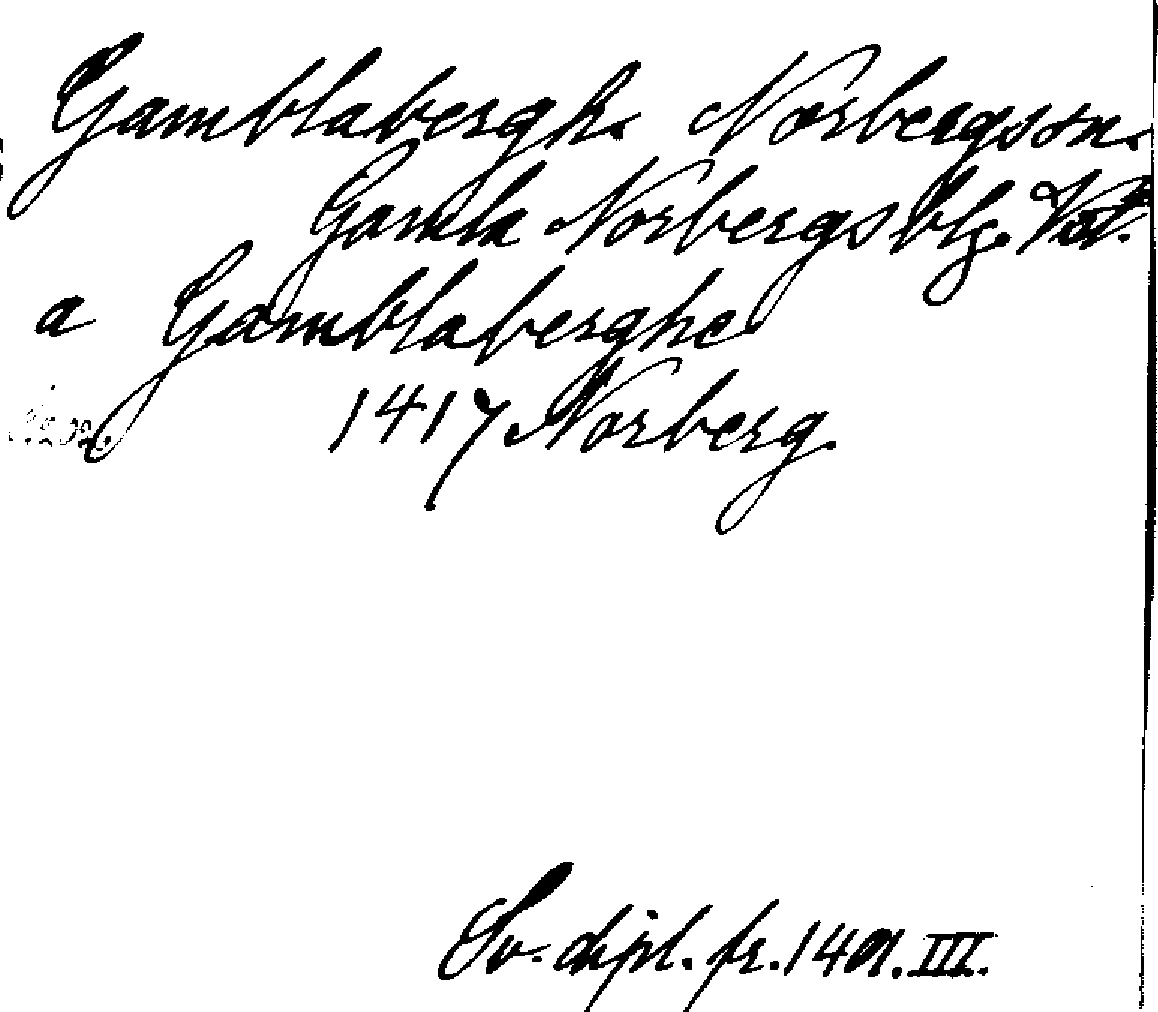 Gamblabergh. Norbergs sn.
Gamla Norbergs blg. Vstm.
a Gamblaberghe
1417 Norberg.
Sv. dipl. fr. 1401. III.